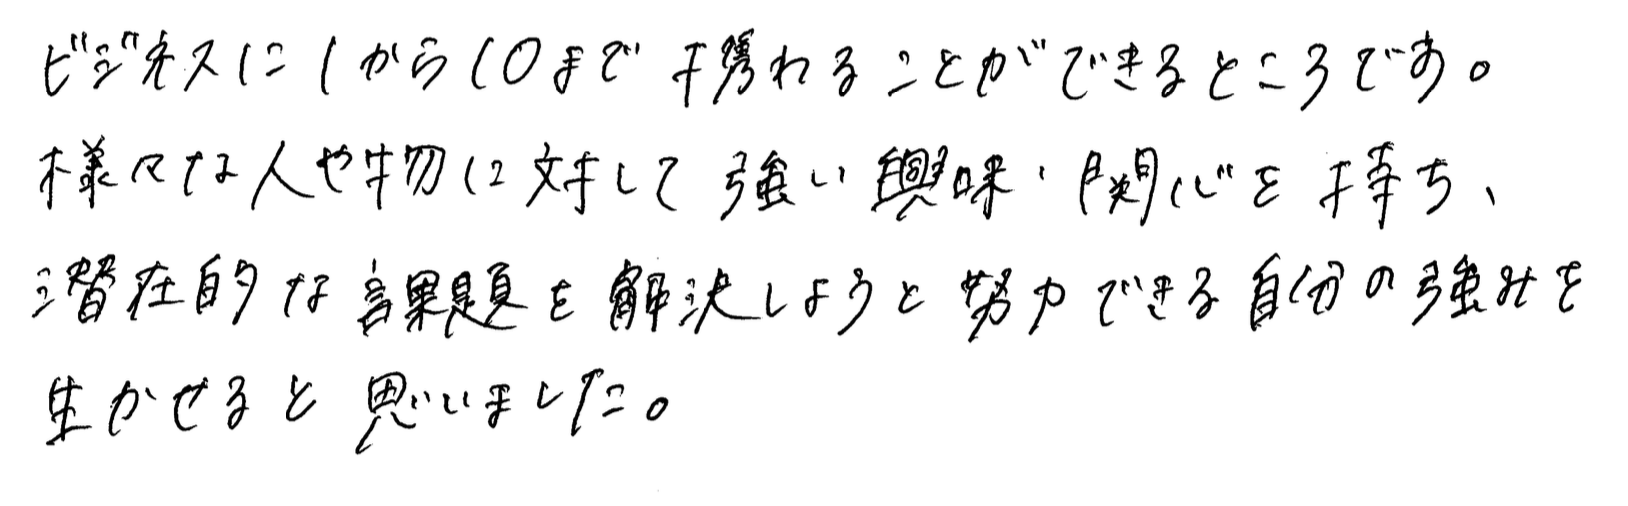 ビジネスに1から10まで携われることができるところです。
様々な人や物に対して強い興味・関心を持ち、
潜在的な課題を解決しようと努力できる自分の強みを
生かせると思いました。